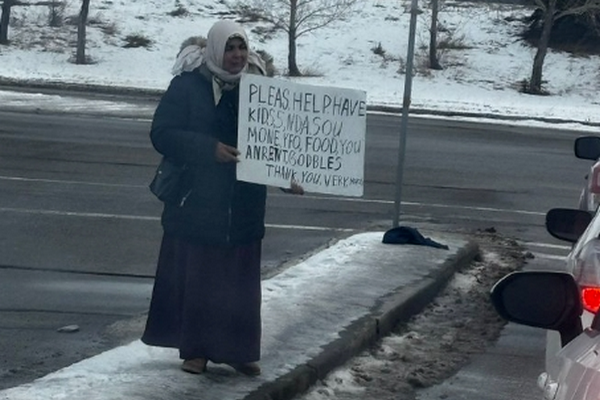 PLEAS.HELP.HAVE
KID,S5,NDA,SOU
MONE,YFO,FOOD,YOU
ANRENT.GODBLES
THANK,YOU,VERY,MUCH